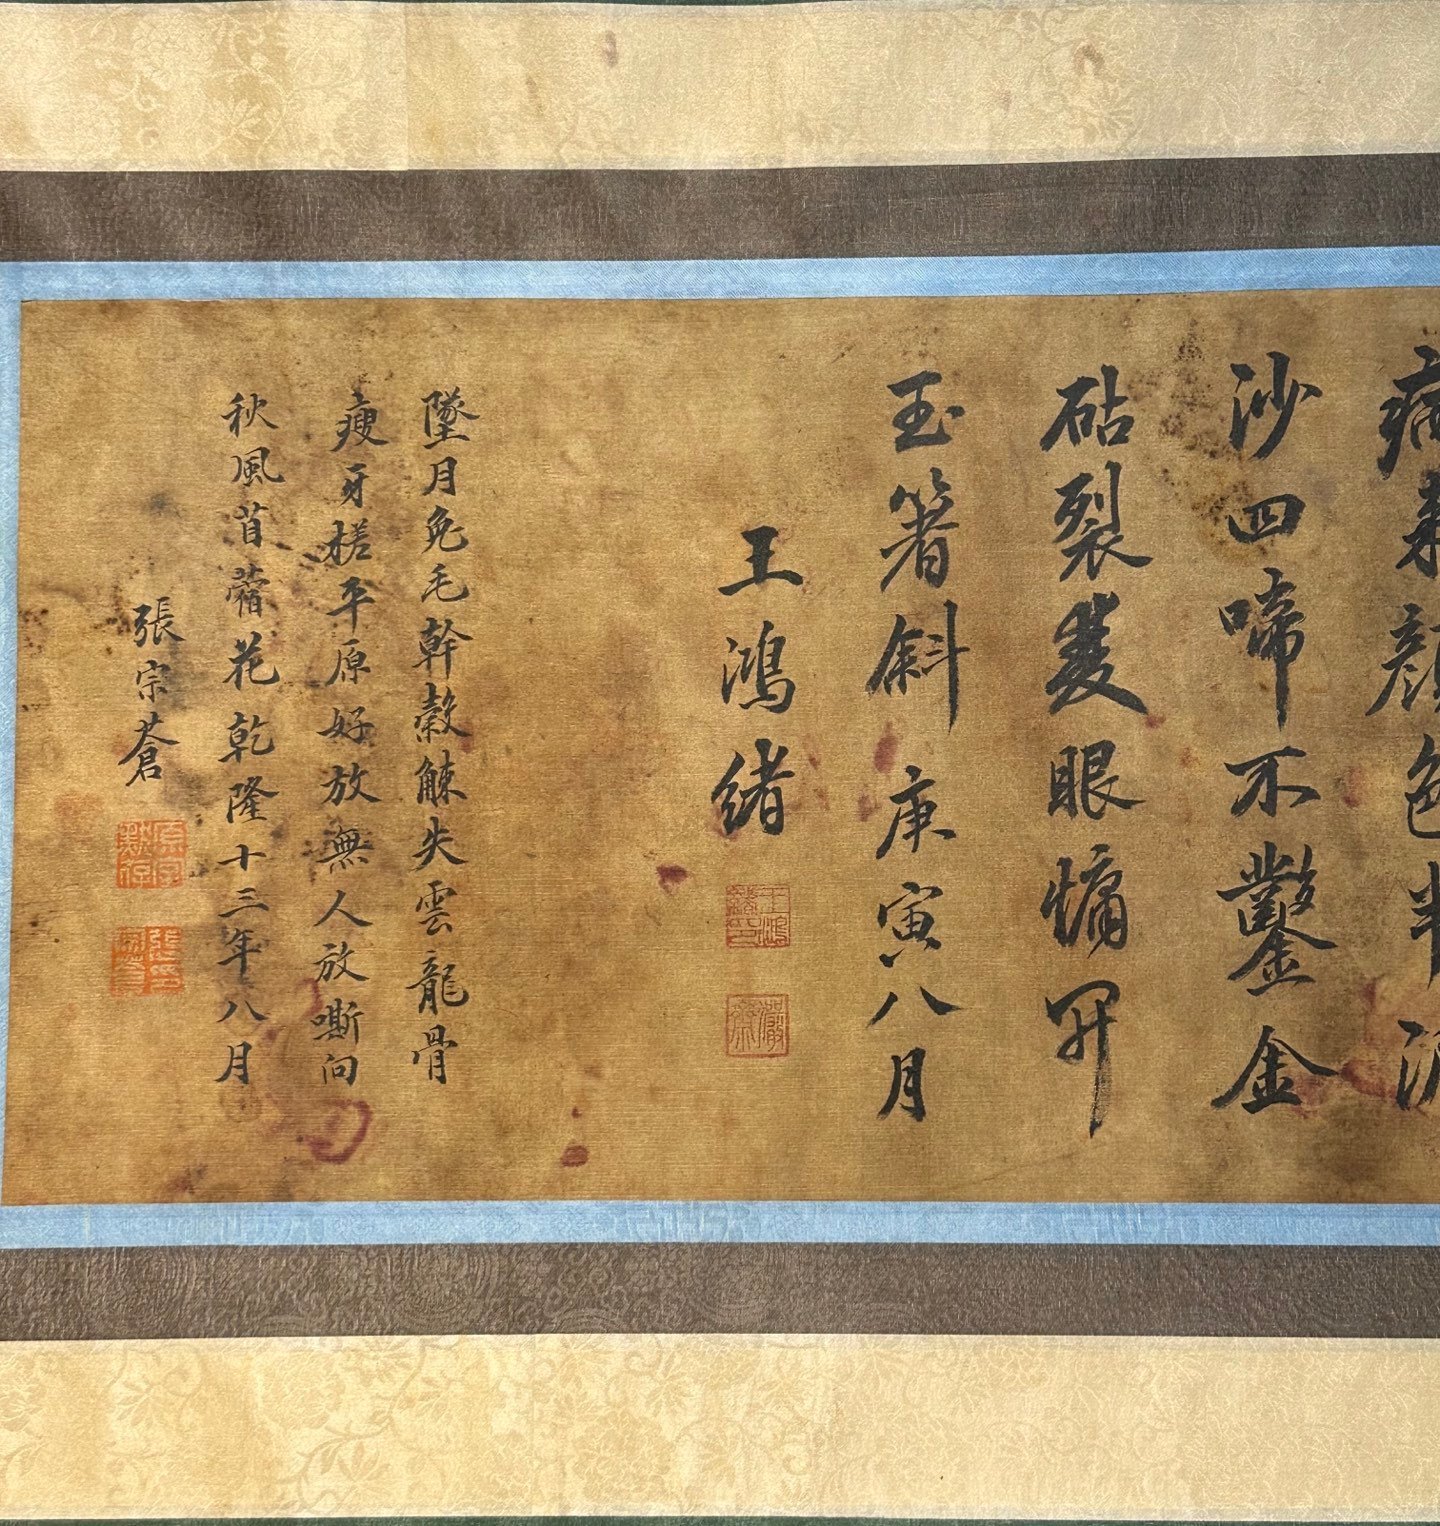 病 顏色半
沙四啼不鑿金
砧裂雙眼慵開
玉箸斜 庚寅八月
王鴻緒
王鴻
墜月兔毛幹觳觫失雲龍骨
瘦牙槎平原好放無人放嘶向
秋風苜蓿花乾隆十三年八月
張宗蒼